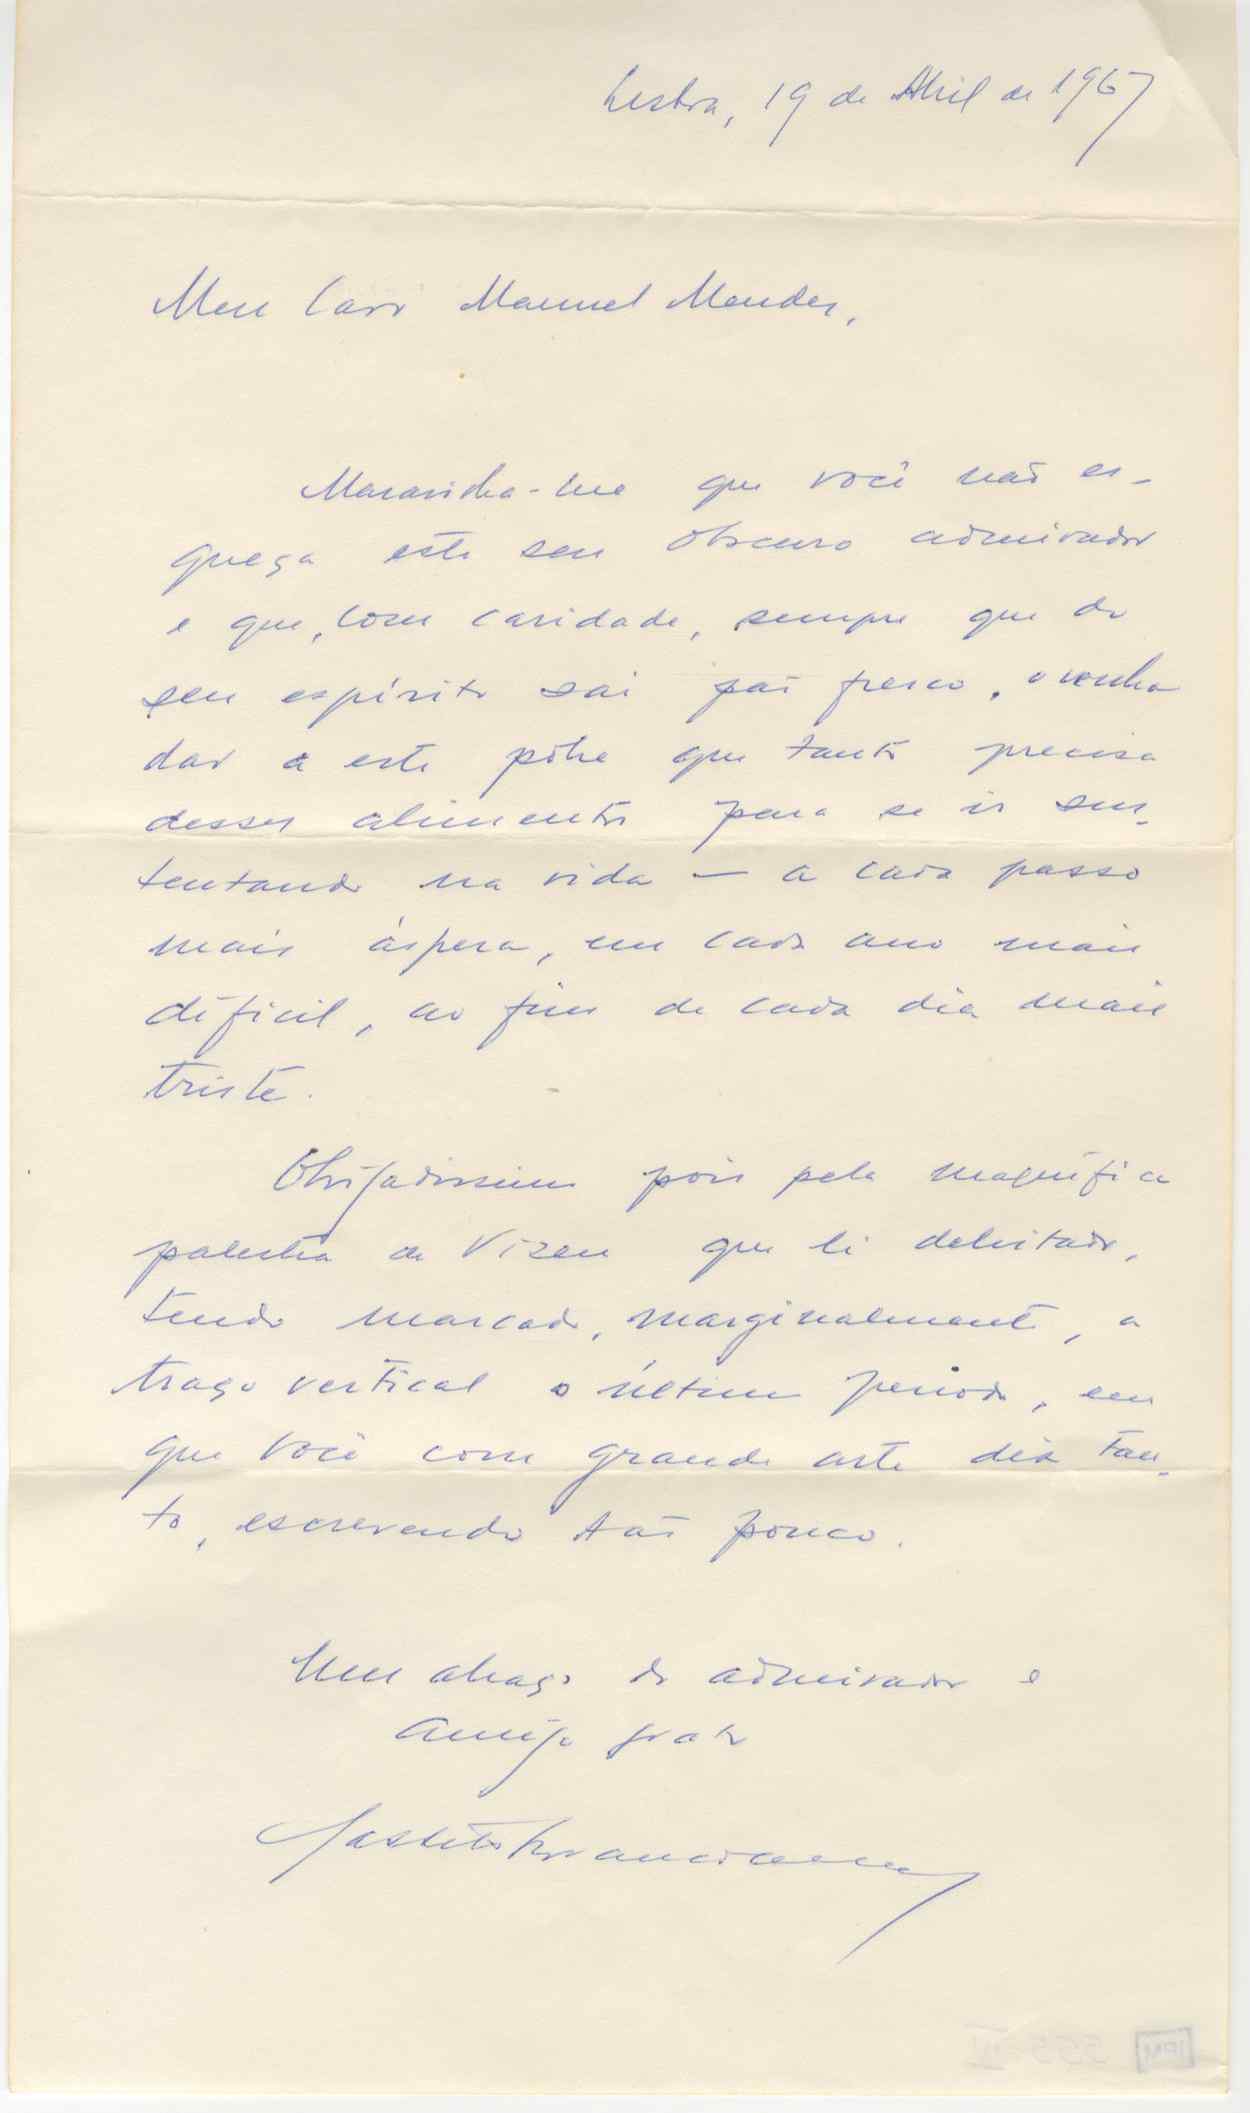 Lisboa, 19 de Abril de 1967
Meu Caro Manuel Mendes,
Maravilha-me que você não es-
queça este seu obscuro admirador
e que, com caridade, sempre que do
seu espírito sai pão fresco, o venha
dar a este pobre que tanto precisa
desses alimentos para se ir sus-
tentando na vida — a cada passo
mais áspera, em cada ano mais
difícil, ao fim de cada dia mais
triste.
Obrigadíssimo pois pela magnífica
palestra de Vizeu que li deleitado,
tendo marcado, marginalmente, a
traço vertical o último período, em
que você com grande arte diz tan-
to, escrevendo tão pouco.
Um abraço do admirador e
amigo grato